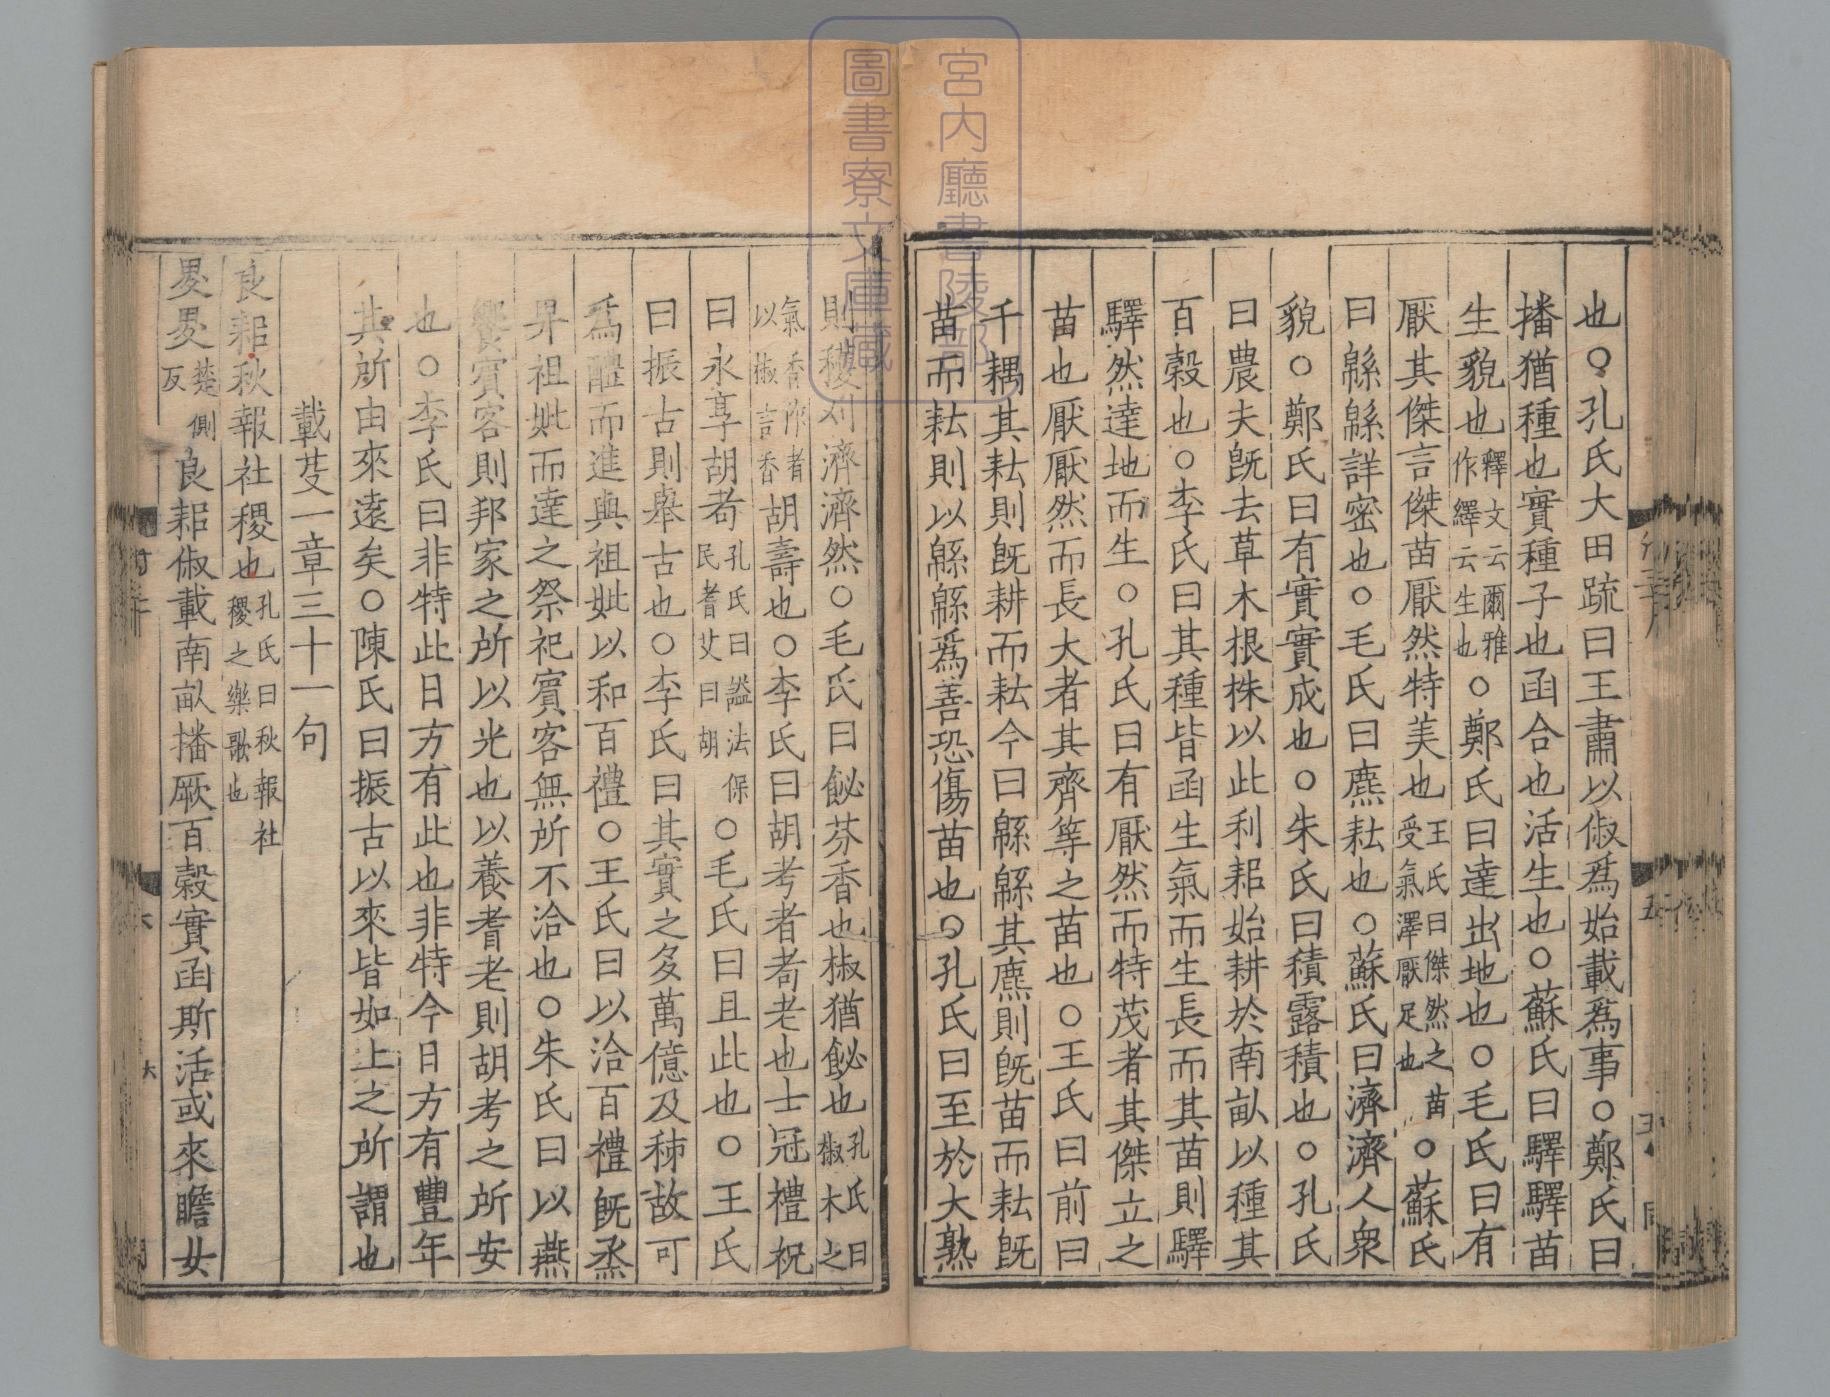 也○孔氏大田疏曰王肅以俶爲始載爲事○鄭氏曰
播猶種也實種子也函合也活生也○蘇氏曰驛驛苗
生貌也釋文云爾雅作繹云生也○鄭氏曰達出地也○毛氏曰有
厭其傑言傑苗厭然特美也王氏曰傑然之苗受氣澤厭足也○蘇氏
曰緜緜詳密也○毛氏曰麃耘也○蘇氏曰濟濟人衆
貌○鄭氏曰有實實成也○朱氏曰積露積也○孔氏
曰農夫旣去草木根株以此利耜始耕於南畝以種其
百穀也○李氏曰其種皆函生氣而生長而其苗則驛
驛然達地而生○孔氏曰有厭然而特茂者其傑立之
苗也厭厭然而長大者其齊等之苗也○王氏曰前曰
千耦其耘則旣耕而耘今曰緜緜其麃則旣苗而耘旣
苗而耘則以緜緜爲善恐傷苗也○孔氏曰至於大熟
則穫刈濟濟然○毛氏曰飶芬香也椒猶飶也孔氏曰椒木之
氣香作者以椒言香胡壽也○李氏曰胡考者耉老也士冠禮祝
曰永享胡耉孔氏曰謚法保民耆艾曰胡○毛氏曰且此也○王氏
曰振古則舉古也○李氏曰其實之多萬億及秭故可
爲醴而進與祖妣以和百禮○王氏曰以洽百禮旣烝
畀祖妣而達之祭祀賓客無所不洽也○朱氏曰以燕
饗賓客則邦家之所以光也以養耆老則胡考之所安
也○李氏曰非特此日方有此也非特今日方有豐年
其所由來遠矣○陳氏曰振古以來皆如上之所謂也
載芟一章三十一句
良耜秋報社稷也孔氏曰秋報社稷之樂歌也
畟畟楚側反良耜俶載南畝播厥百穀實函斯活或來瞻女
宮内廳書陵部
圖書寮文庫藏